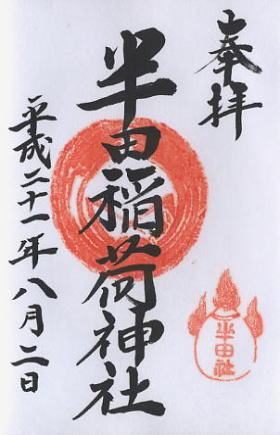 奉拝
半田稲荷神社
平成二十一年八月二日
半田社